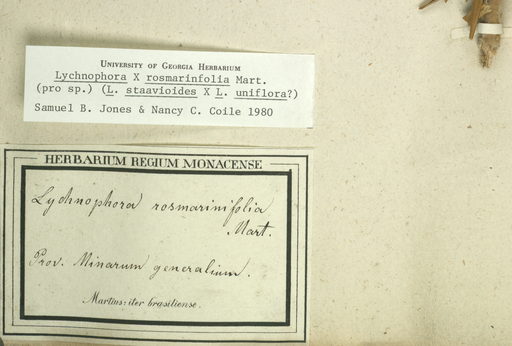 University of Georgia Herbarium
Lychnophora X rosmarinfolia Mart.
(pro sp.) (L. staavioides X L. uniflora?)
Samuel B. Jones & Nancy C. Coile 1980
HERBARIUM REGIUM MONACENSE
Lychnophora rosmarinifolia
Mart.
Prov. Minarum generalium.
Martius: iter brasiliense.